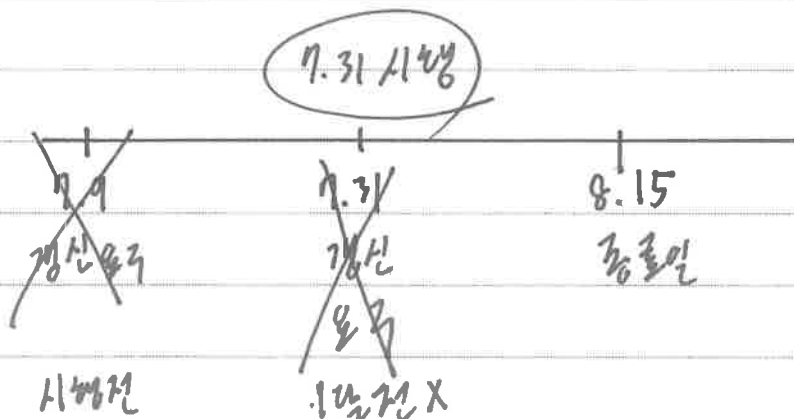 7.31 시행
7.9
갱신요구
시행전
7.31
갱신
요구
1달전 X
8.15
종료일